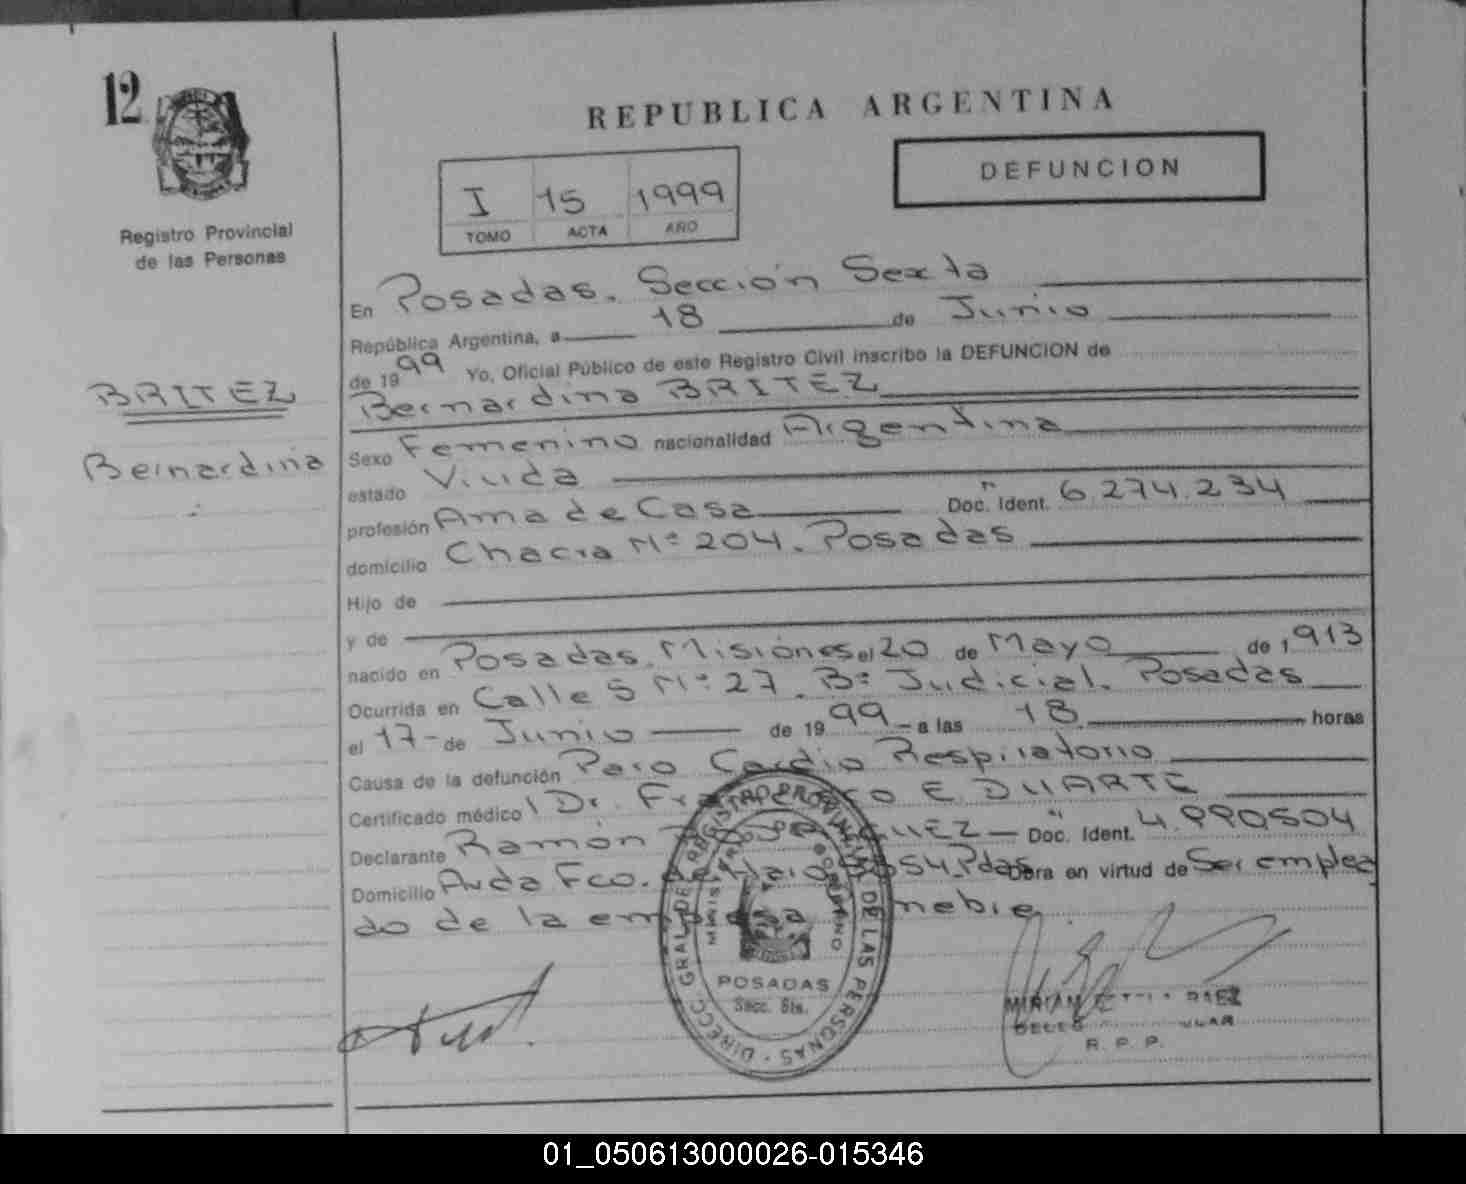 12
REPUBLICA ARGENTINA
DEFUNCION
I 15 1999
TOMO ACTA AÑO
Registro Provincial
de las Personas
BRITEZ
Bernardina
En Posadas. Sección Sexta
República Argentina, a 18 de Junio
de 1999 Yo, Oficial Público de este Registro Civil inscribo la DEFUNCION de
Bernardina BRITEZ
Sexo Femenino nacionalidad Argentina
estado Viuda
profesión Ama de Casa Doc. Ident. 6.274.234
domicilio Chacra Nº 204. Posadas
Hijo de
y de
nacido en Posadas. Misiones el 20 de Mayo de 1913
Ocurrida en Calle 5 Nº 27. Bº Judicial. Posadas
el 17 de Junio de 1999 a las 18 horas
Causa de la defunción Paro Cardio Respiratorio
Certificado médico Dr. E. DUARTE
Declarante Ramón Doc. Ident. 4.990504
Domicilio Avda Fco. de 54 Pdas Obra en virtud de Ser emplea
do de la empresa
DIRECC. GRAL. DE REGISTRO PROVINCIAL DE LAS PERSONAS
POSADAS
Secc. 6ta.
MIRIAM PAEZ
R. P. P.
01_050613000026-015346